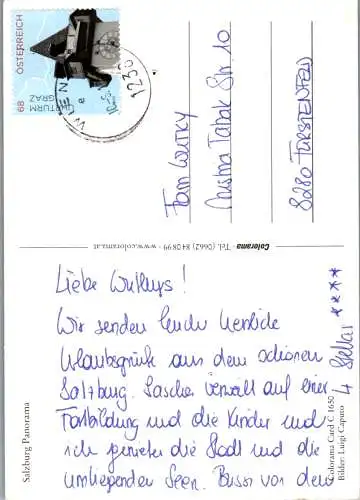 ÖSTERREICH
UHRTURM
GRAZ
68
WIEN
1230
Fam Wutky
Christina Tabak Str. 10
8280 FÜRSTENFELD
Colorama · Tel. (0662) 84 08 99 · www.colorama.at
Salzburg Panorama
Colorama Card C 1650
Bilder: Luigi Caputo
Liebe Wutkys!
Wir senden Euch herzliche
Urlaubsgrüße aus dem schönen
Salzburg. Sascha verweilt auf einer
Fortbildung und die Kinder und
ich genießen die Stadt und die
umliegenden Seen. Bussi vor dem
4 Stellar ****